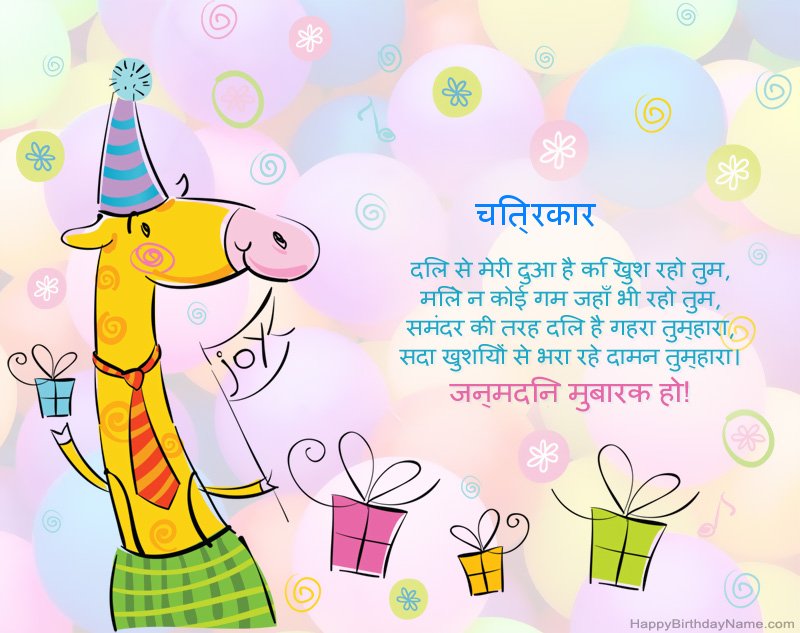 joy
चित्रकार
दिल से मेरी दुआ है कि खुश रहो तुम,
मिले न कोई गम जहाँ भी रहो तुम,
समंदर की तरह दिल है गहरा तुम्हारा,
सदा खुशियों से भरा रहे दामन तुम्हारा।
जन्मदिन मुबारक हो!
HappyBirthdayName.com